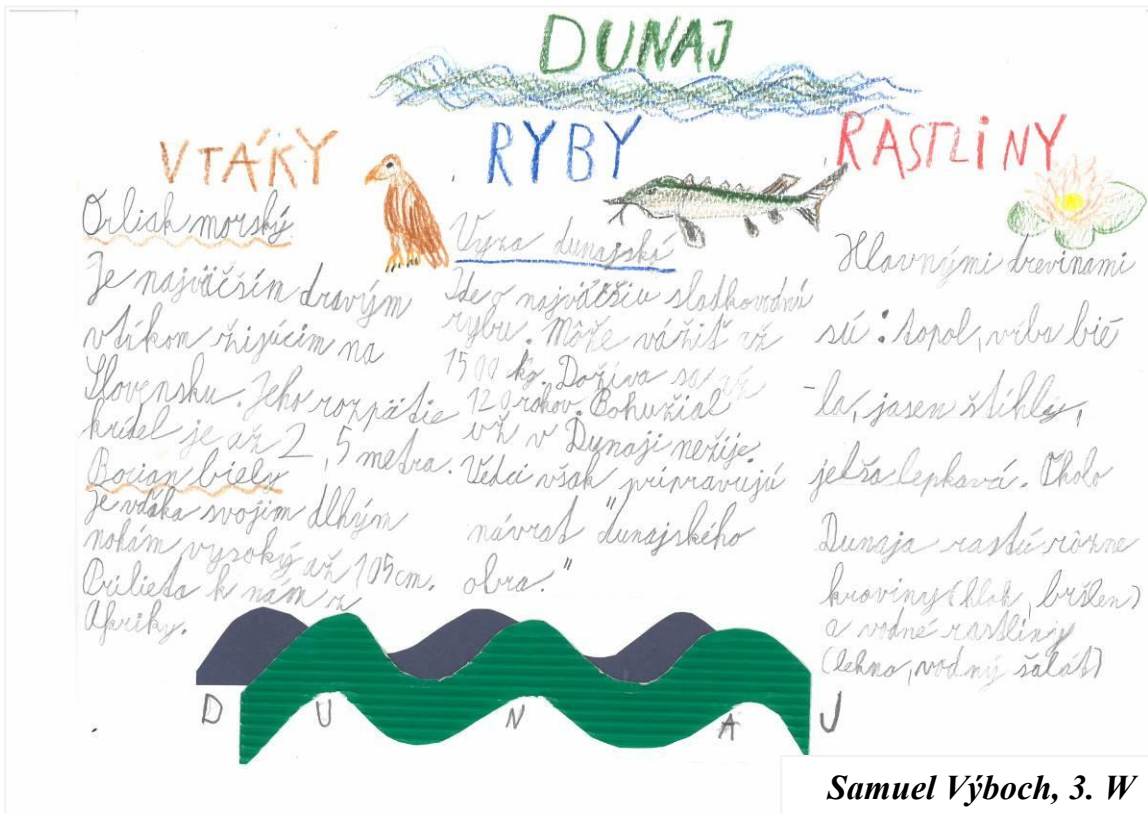 DUNAJ
VTÁKY
Orliak morský
Je najväčším dravým
vtákom žijúcim na
Slovensku. Jeho rozpätie
krídel je až 2,5 metra.
Bocian biely
Je vďaka svojim dlhým
nohám vysoký až 105cm.
Prilieta k nám z
Afriky.
RYBY
Vyza dunajská
Ide o najväčšiu sladkovodnú
rybu. Môže vážiť až
1500 kg. Dožíva sa až
120 rokov. Bohužial
už v Dunaji nežije.
Vedci však pripravujú
návrat "dunajského
obra."
RASTLINY
Hlavnými drevinami
sú: topol, vŕba bie
-la, jasen štíhly,
jelša lepkavá. Okolo
Dunaja rastú rôzne
kroviny (hloh, bršlen)
a vodné rastliny
(lekno, vodný šalát)
D U N A J
Samuel Výboch, 3. W